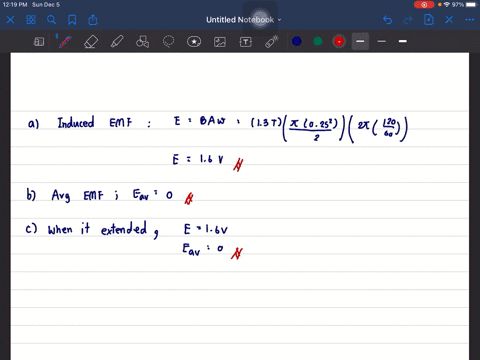 12:19 PM Sun Dec 5
97%
Untitled Notebook
a) Induced EMF : E = BAW = (1.3T) (π(0.25²)/2) (2π(120/60))
E = 1.6 V
b) Avg EMF ; Eav = 0
c) when it extended, E = 1.6V
Eav = 0